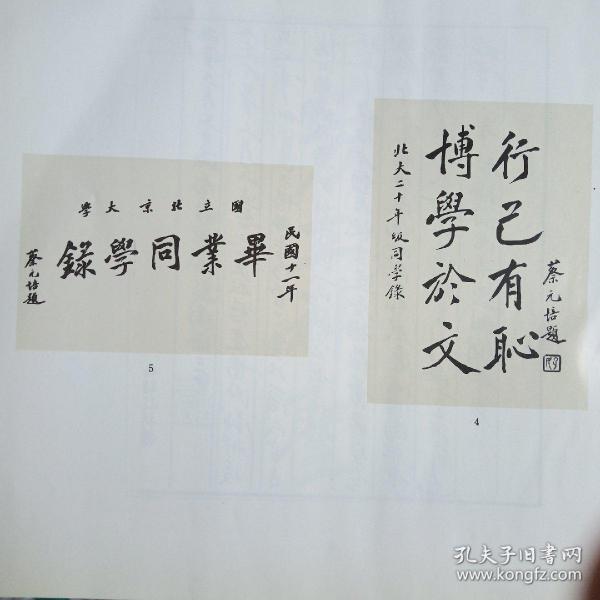 行己有恥
博學於文
北大二十年級同學錄
蔡元培題
4
民國十一年
國立北京大學
畢業同學錄
蔡元培題
5
孔夫子旧书网
www.kongfz.com